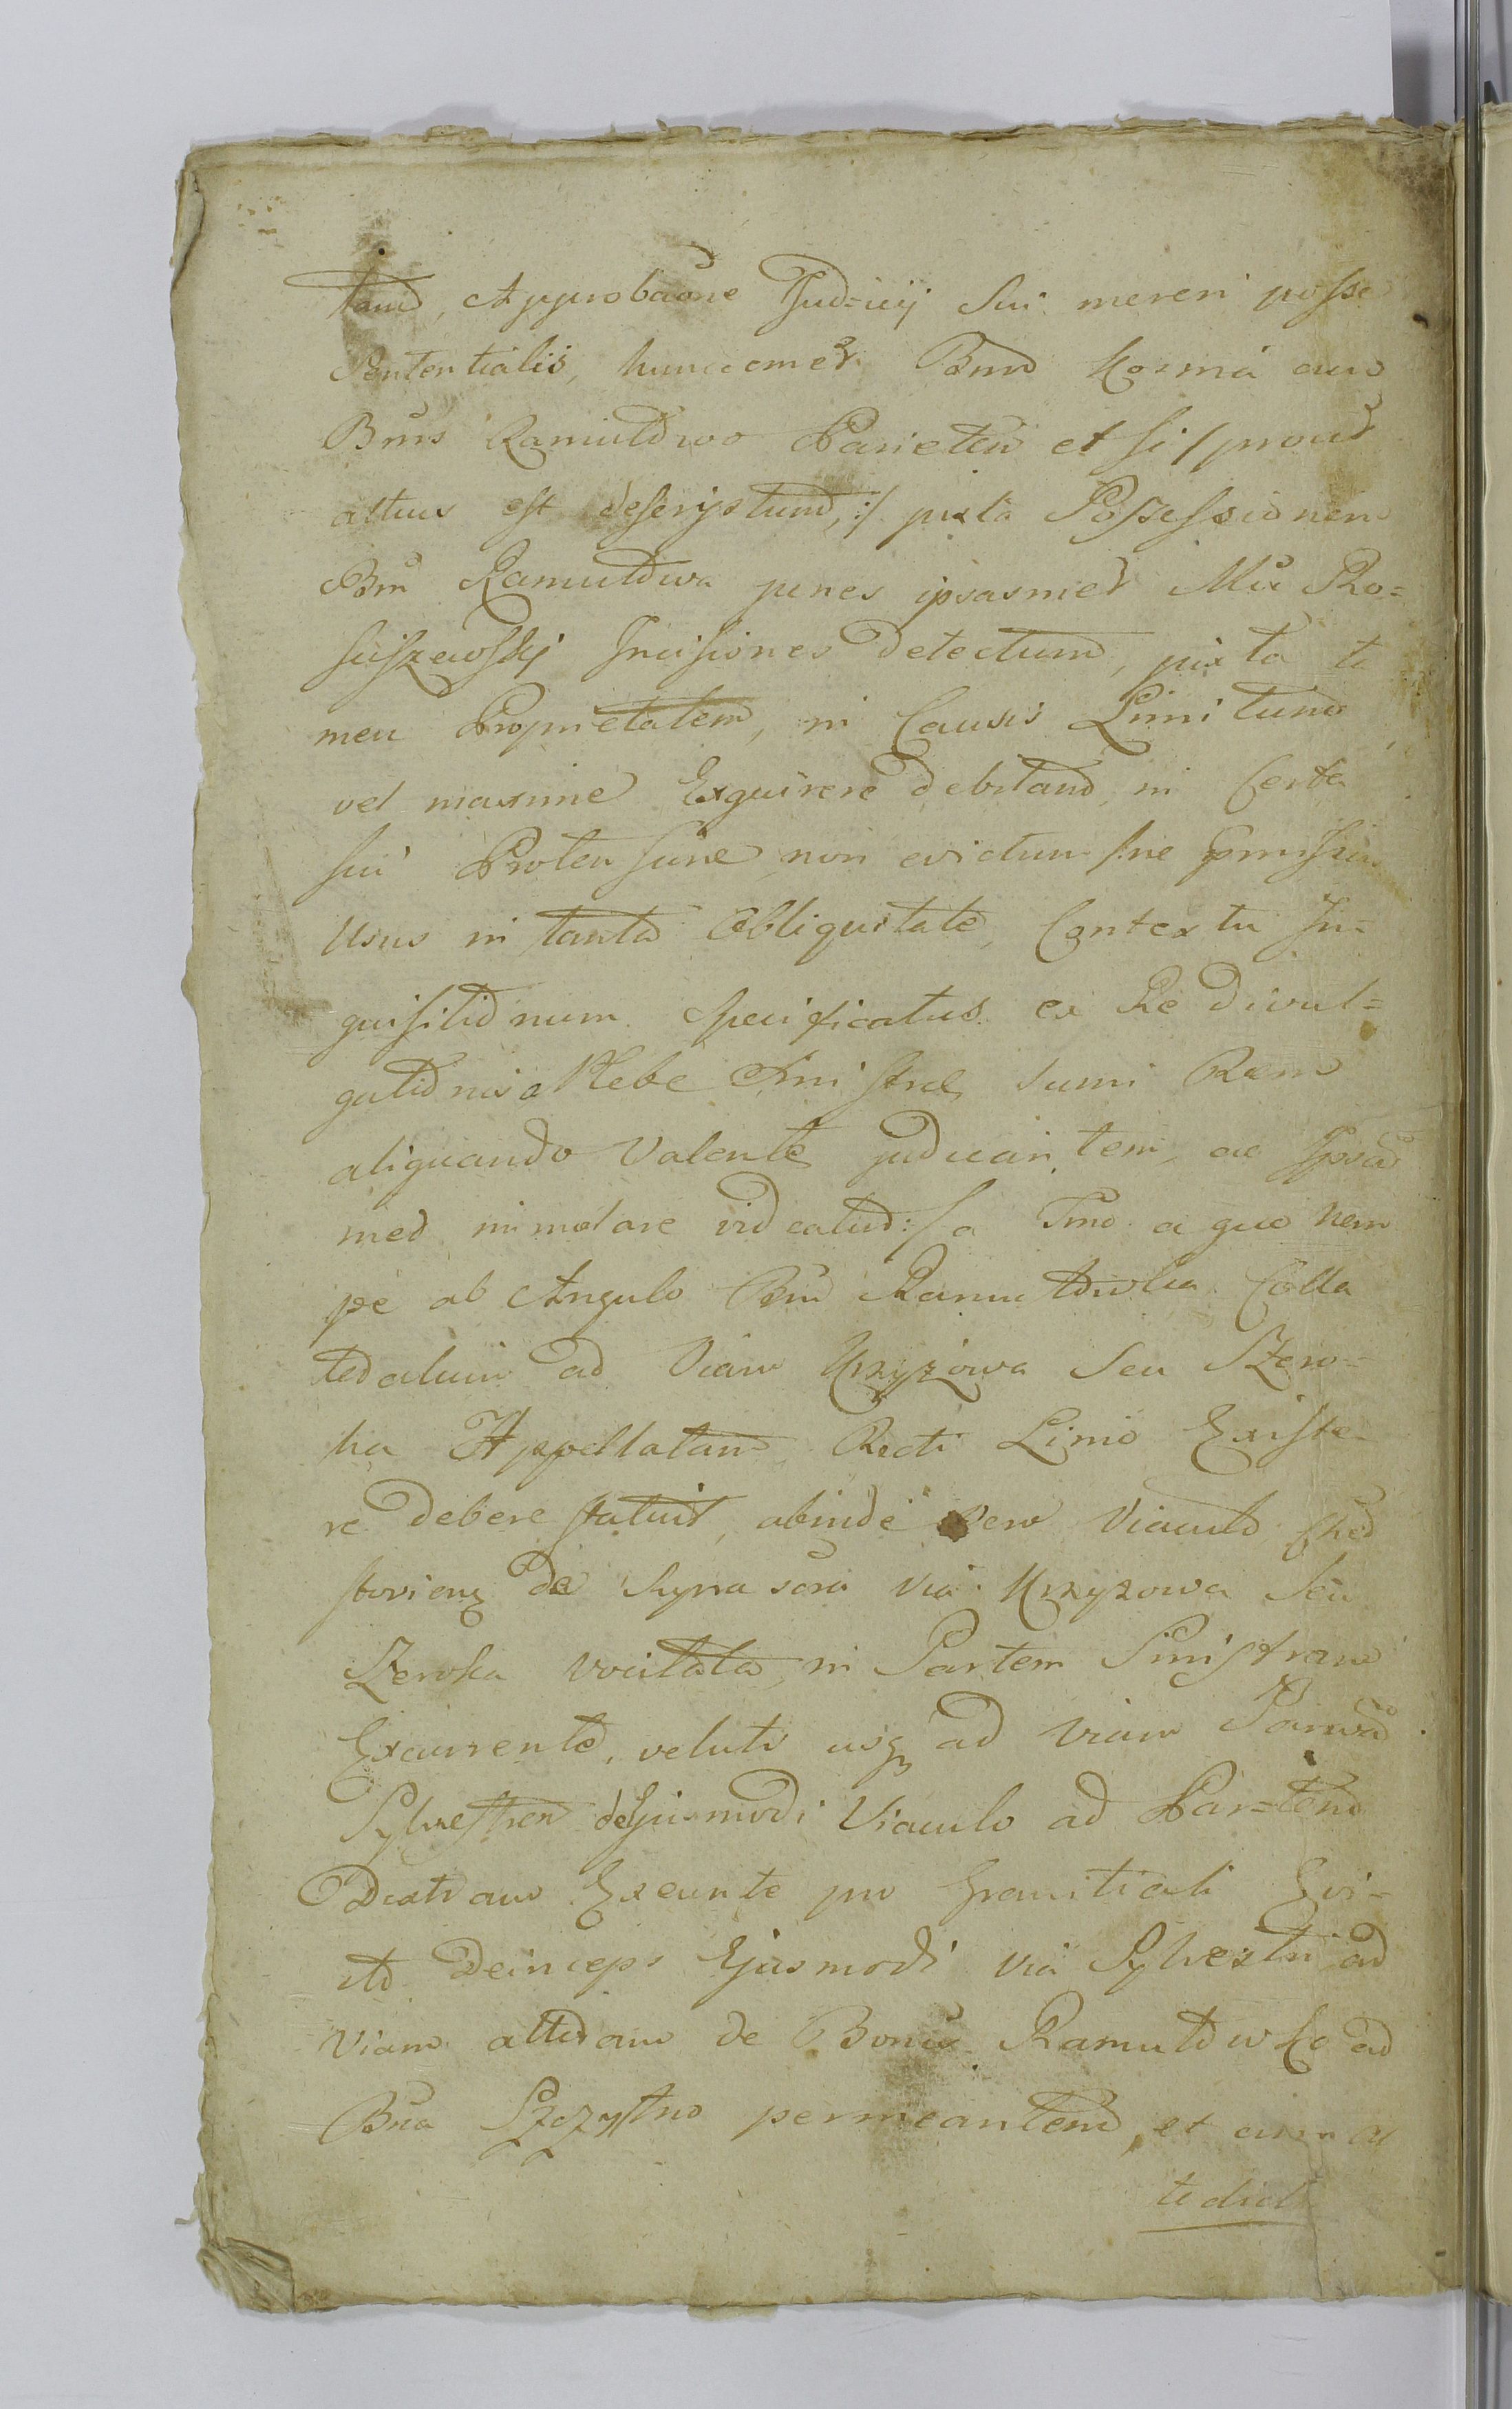 tam, Approbaone Jud=icij Sui mereri posse
Sententialis, huncemet Bnru Kozma cum
Bnis Ramułtowo Parietem et si / prout
actum est descriptum, :/ juxta Possessionem
Bnru Ramułtowa penes ipsasmet Mci Ro=
suszewskj Incisiones detectum, juxta ta
men Proprietatem, in Causis Limitum
vel maxime Exquirere debitam, in Certa
sui Protensione non evictum sive
Usus in tanta Obliquitate, Contextu In=
quisitionum Specificatus ex Re divul=
gationis a Plebe sumi Rem
aliquando Valente judicantem, ac Ipsam
met videatur :/ a Tmo a quo nem
pe ab Angulo Bnru Ramułtowka Colla
teralium ad Viam Krzyzowa Seu Szero=
ka Appellatam Recti Limo Existe=
re debere statuit, abinde vero Viaculo
de via Krzyzowa Seu
Szeroka vocitata, in Partem Sinistram
Excurrente, veluti usq ad viam Parvam
Sylvestrem dehujusmodi Viaculo ad Par=tem
Dextram Exeunte pro Graniciali Evi=
Deinceps Ejusmodi via Sylvestri ad
Viam alteram de Bonis Ramułtowko ad
Bna Szczytno permeantem, et cum a
te dict